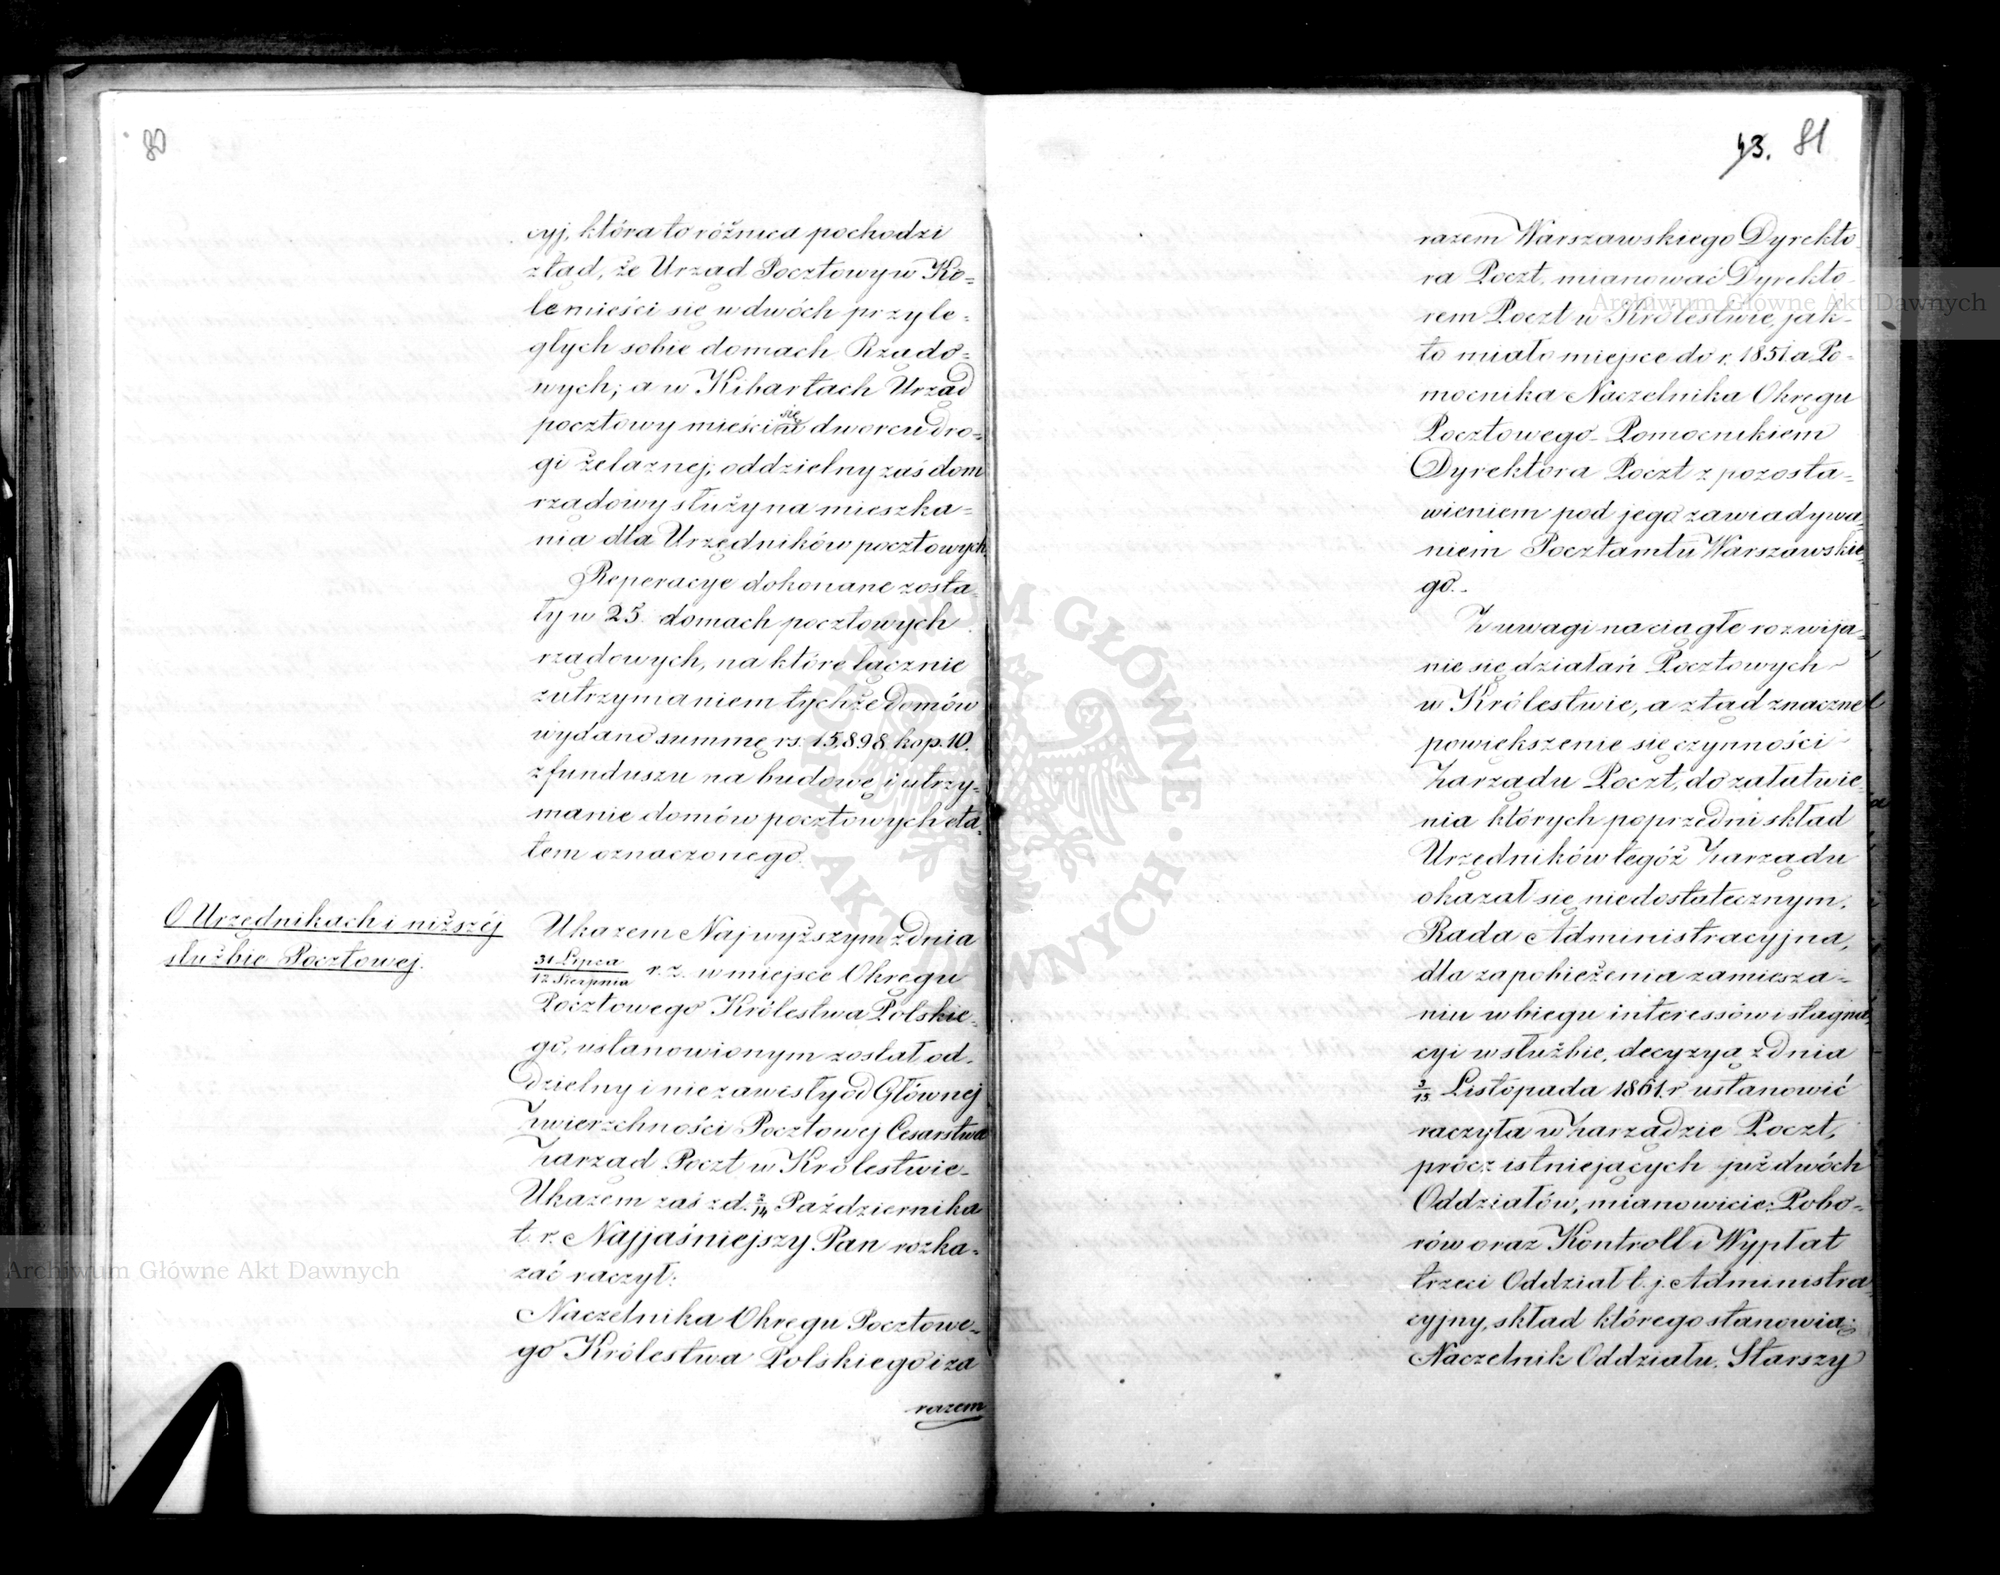 80
cyj, która to różnica pochodzi
ztąd, że Urząd Pocztowy w Ko=
le mieści się w dwóch przyle=
głych sobie domach Rządo=
wych; a w Kibartach Urząd
pocztowy mieści się w dworcu dro=
gi żelaznej; oddzielny zaś dom
rządowy służy na mieszka=
nia dla Urzędników pocztowych.
Reperacye dokonane zosta=
ły w 25. domach pocztowych
rządowych, na które łącznie
z utrzymaniem tychże domów
wydano summę rs. 15,898 kop. 10.
z funduszu na budowę i utrzy=
manie domów pocztowych eta=
tem oznaczonego.
O Urzędnikach i niższéj
służbie Pocztowej.
Ukazem Najwyższym z dnia
31 Lipca / 12 Sierpnia r. z. w miejsce Okręgu
Pocztowego Królestwa Polskie=
go, ustanowionym został od=
dzielny i niezawisły od Głównej
Zwierzchności Pocztowej Cesarstwa
Zarząd Poczt w Królestwie.
Ukazem zaś z d. 2/14 Października
t. r. Najjaśniejszy Pan rozka=
zać raczył:
Naczelnika Okręgu Pocztowe=
go Królestwa Polskiego i za
razem
43. 81
razem Warszawskiego Dyrekto=
ra Poczt, mianować Dyrekto=
rem Poczt w Królestwie, jak=
to miało miejsce do r. 1851 a Po=
mocnika Naczelnika Okręgu
Pocztowego - Pomocnikiem
Dyrektora Poczt z pozosta=
wieniem pod jego zawiadywa=
niem Pocztamtu Warszawskie=
go.
Z uwagi na ciągłe rozwija=
nie się działań Pocztowych
w Królestwie, a ztąd znaczne
powiększenie się czynności
Zarządu Poczt, do załatwie=
nia których poprzedni skład
Urzędników tegóż Zarządu
okazał się niedostatecznym,
Rada Administracyjna,
dla zapobieżenia zamiesza=
niu w biegu interessów i stagna=
cyi w służbie, decyzyą z dnia
3/15 Listopada 1861 r. ustanowić
raczyła w Zarządzie Poczt,
prócz istniejących już dwóch
Oddziałów, mianowicie: Pobo=
rów oraz Kontroll i Wypłat
trzeci Oddział t. j. Administra=
cyjny, skład którego stanowią:
Naczelnik Oddziału, Starszy
Archiwum Główne Akt Dawnych
Archiwum Główne Akt Dawnych
ARCHIWUM GŁÓWNE AKT DAWNYCH